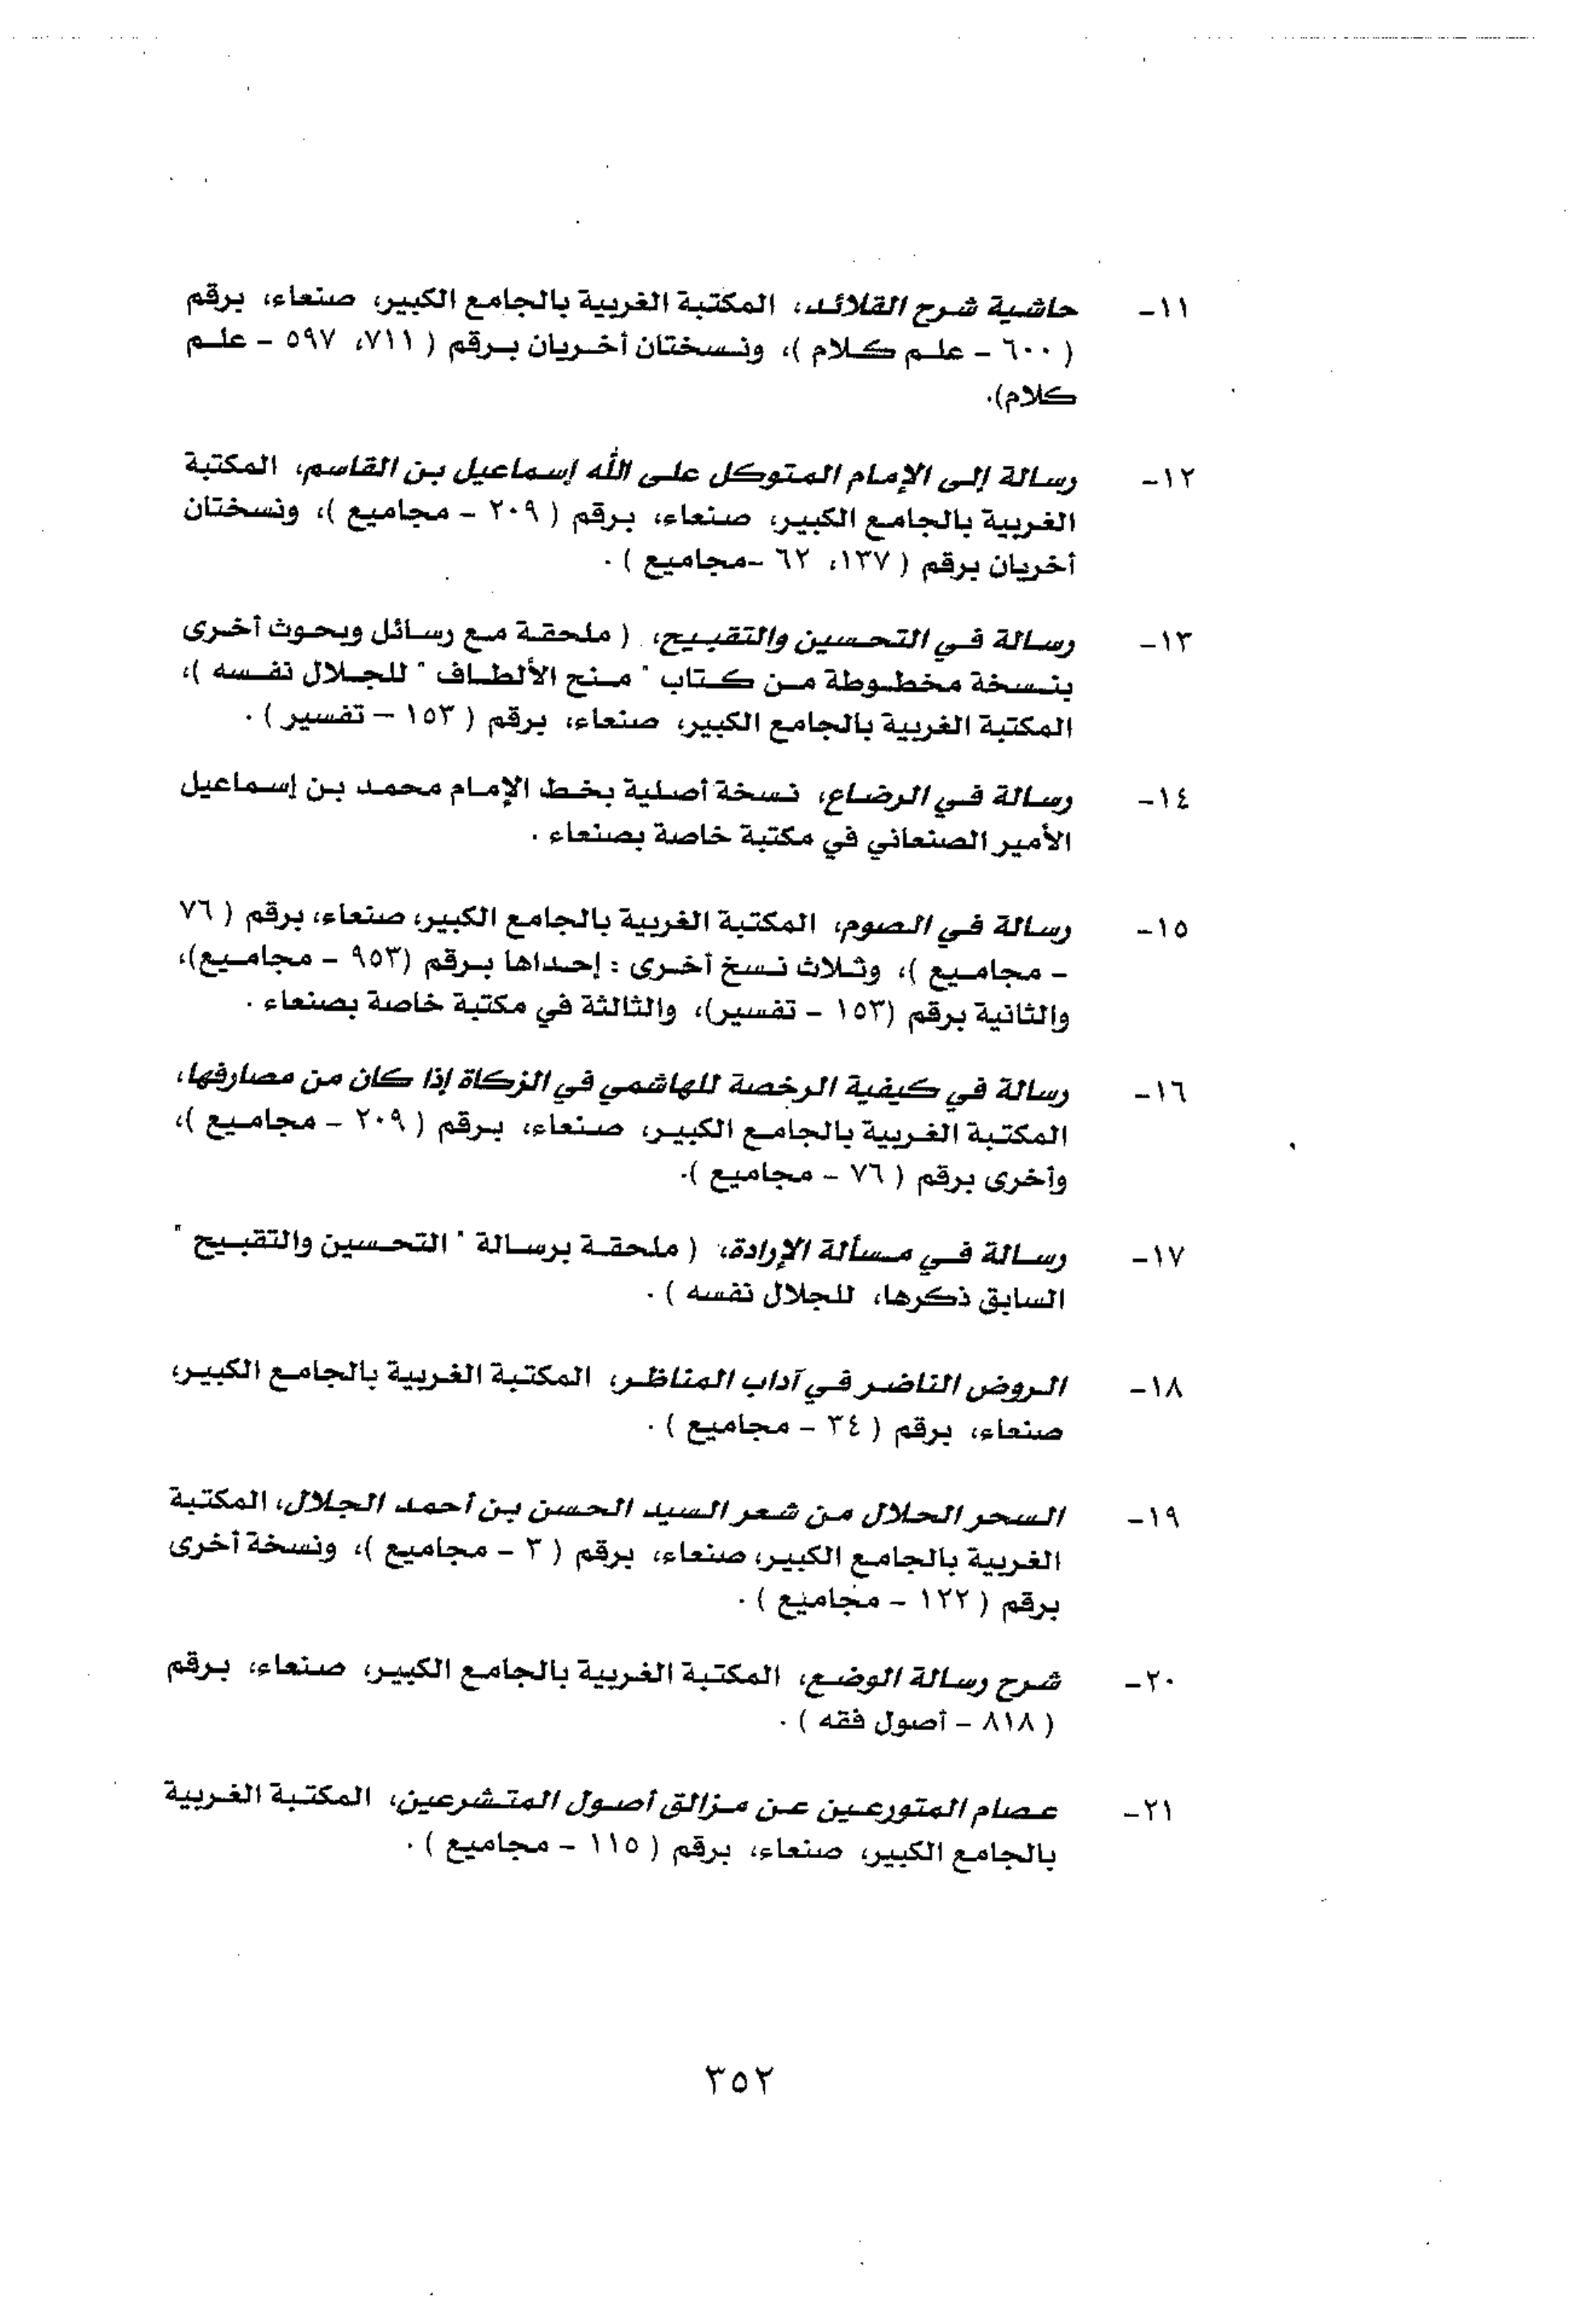 ١١- حاشية شرح القلائد، المكتبة الغربية بالجامع الكبير، صنعاء، برقم
( ٦٠٠ - علم كلام )، ونسختان أخريان برقم ( ٧١١، ٥٩٧ - علم
كلام).
١٢- رسالة إلى الإمام المتوكل على الله إسماعيل بن القاسم، المكتبة
الغربية بالجامع الكبير، صنعاء، برقم ( ٢٠٩ - مجاميع )، ونسختان
أخريان برقم ( ١٣٧، ٦٢ -مجاميع ) .
١٣- رسالة في التحسين والتقبيح، ( ملحقة مع رسائل وبحوث أخرى
بنسخة مخطوطة من كتاب " منح الألطاف " للجلال نفسه )،
المكتبة الغربية بالجامع الكبير، صنعاء، برقم ( ١٥٣ – تفسير ) .
١٤- رسالة في الرضاع، نسخة أصلية بخط الإمام محمد بن إسماعيل
الأمير الصنعاني في مكتبة خاصة بصنعاء .
١٥- رسالة في الصوم، المكتبة الغربية بالجامع الكبير، صنعاء، برقم ( ٧٦
- مجاميع )، وثلاث نسخ أخرى : إحداها برقم (٩٥٣ - مجاميع)،
والثانية برقم (١٥٣ - تفسير)، والثالثة في مكتبة خاصة بصنعاء .
١٦- رسالة في كيفية الرخصة للهاشمي في الزكاة إذا كان من مصارفها،
المكتبة الغربية بالجامع الكبير، صنعاء، برقم ( ٢٠٩ - مجاميع )،
وأخرى برقم ( ٧٦ - مجاميع ).
١٧- رسالة في مسألة الإرادة، ( ملحقة برسالة " التحسين والتقبيح "
السابق ذكرها، للجلال نفسه ) .
١٨- الروض الناضر في آداب المناظر، المكتبة الغربية بالجامع الكبير،
صنعاء، برقم ( ٣٤ - مجاميع ) .
١٩- السحر الحلال من شعر السيد الحسن بن أحمد الجلال، المكتبة
الغربية بالجامع الكبير، صنعاء، برقم ( ٣ - مجاميع )، ونسخة أخرى
برقم ( ١٢٢ - مجاميع ) .
٢٠- شرح رسالة الوضع، المكتبة الغربية بالجامع الكبير، صنعاء، برقم
( ٨١٨ - أصول فقه ) .
٢١- عصام المتورعين عن مزالق أصول المتشرعين، المكتبة الغربية
بالجامع الكبير، صنعاء، برقم ( ١١٥ - مجاميع ) .
٣٥٢